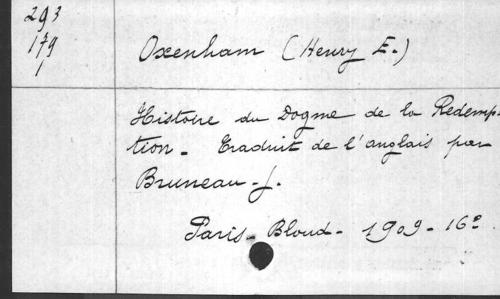 293
179
1
Oxenham (Henry E.)
Histoire du Dogme de la Redemp-
tion - Traduit de l'anglais par
Bruneau - J.
Paris - Bloud - 1909 - 16º